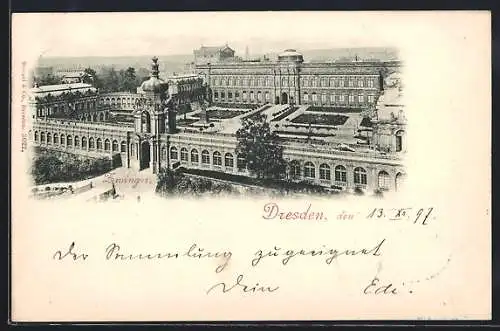 Stengel & Co., Dresden 5022.
Zwinger.
Dresden, den 13. XI. 97.
Der Sammlung zugeeignet
Dein Edi.